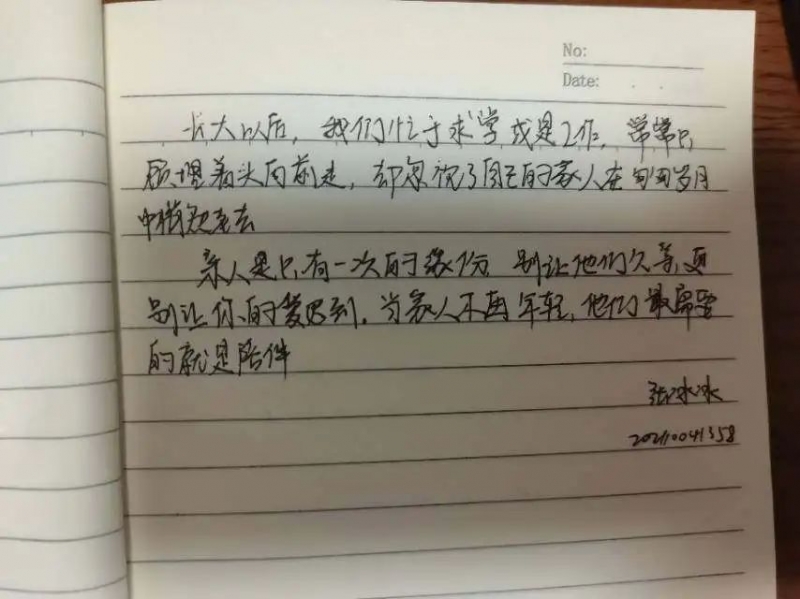 No:
Date:
长大以后，我们忙于求学或是工作，常常只
顾埋着头向前走，却忽视了自己的家人在匆匆岁月
中悄然老去
亲人是只有一次的缘份 别让他们久等,更
别让你的爱迟到。当家人不再年轻，他们最需要
的就是陪伴
张冰冰